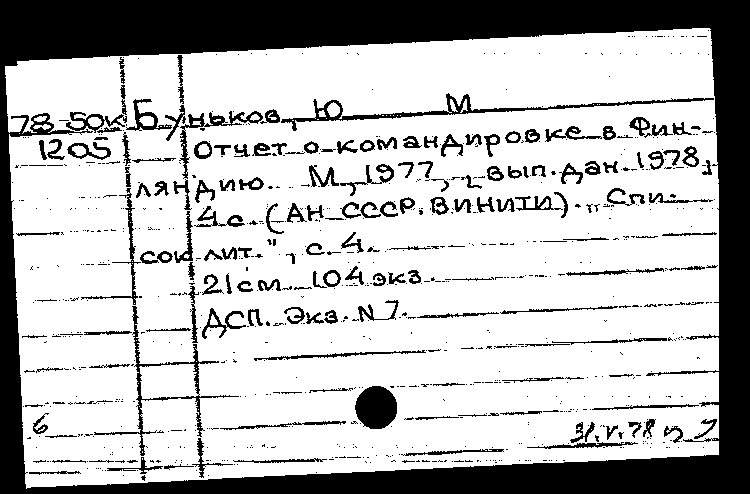 78-50к Буньков, Ю М
1205 Отчет о командировке в Фин-
ляндию. М, 1977, [вып. дан. 1978]
4 с. (АН СССР. ВИНИТИ). „Спи-
сок лит.", с. 4.
21 см 104 экз.
ДСП. Экз. N 7.
6
31.V.78